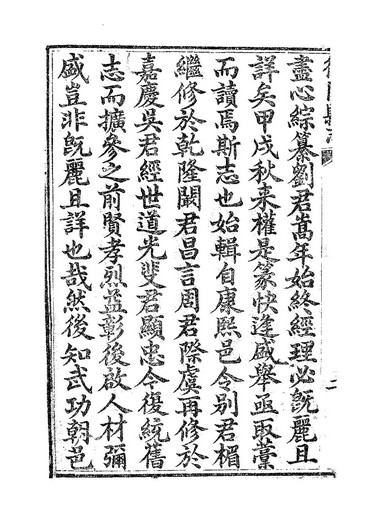 盡心綜纂劉君嵩年始終經理必旣麗且
詳矣甲戌秋来權是篆快逢盛舉亟取藁
而讀焉斯志也始輯自康熙邑令别君楣
繼修於乾隆闞君昌言周君際虞再修於
嘉慶吳君經世道光斐君顯忠今復統舊
志而擴參之前賢孝烈益彰後啟人材彌
盛豈非旣麗且詳也哉然後知武功朝邑